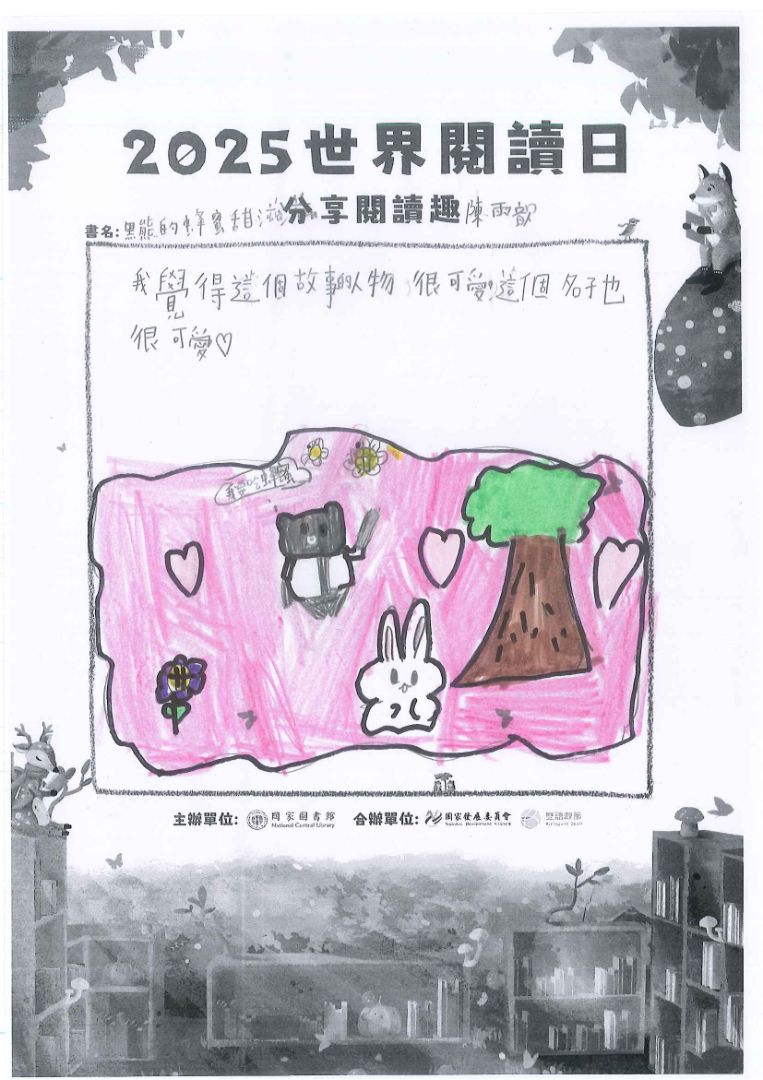 2025世界閱讀日
分享閱讀趣 陳雨歆
書名:黑熊的蜂蜜甜滋滋
我覺得這個故事的人物很可愛這個名子也
很可愛♡
我愛吃蜂蜜
主辦單位: 國家圖書館 National Central Library 合辦單位: 國家發展委員會 National Development Council 雙語政策 Bilingual 2030